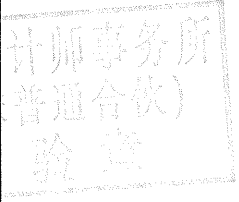 计师事务所
普通合伙）
验